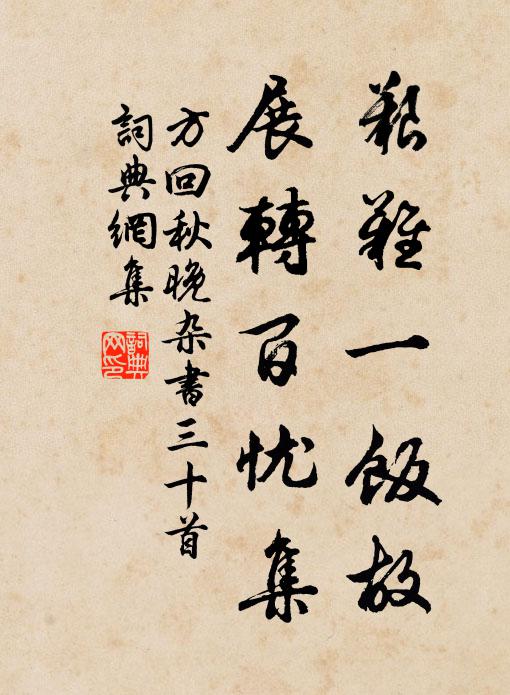 艱難一飯故
展轉百忧集
方回秋晚杂書三十首
詞典網集
詞典網印